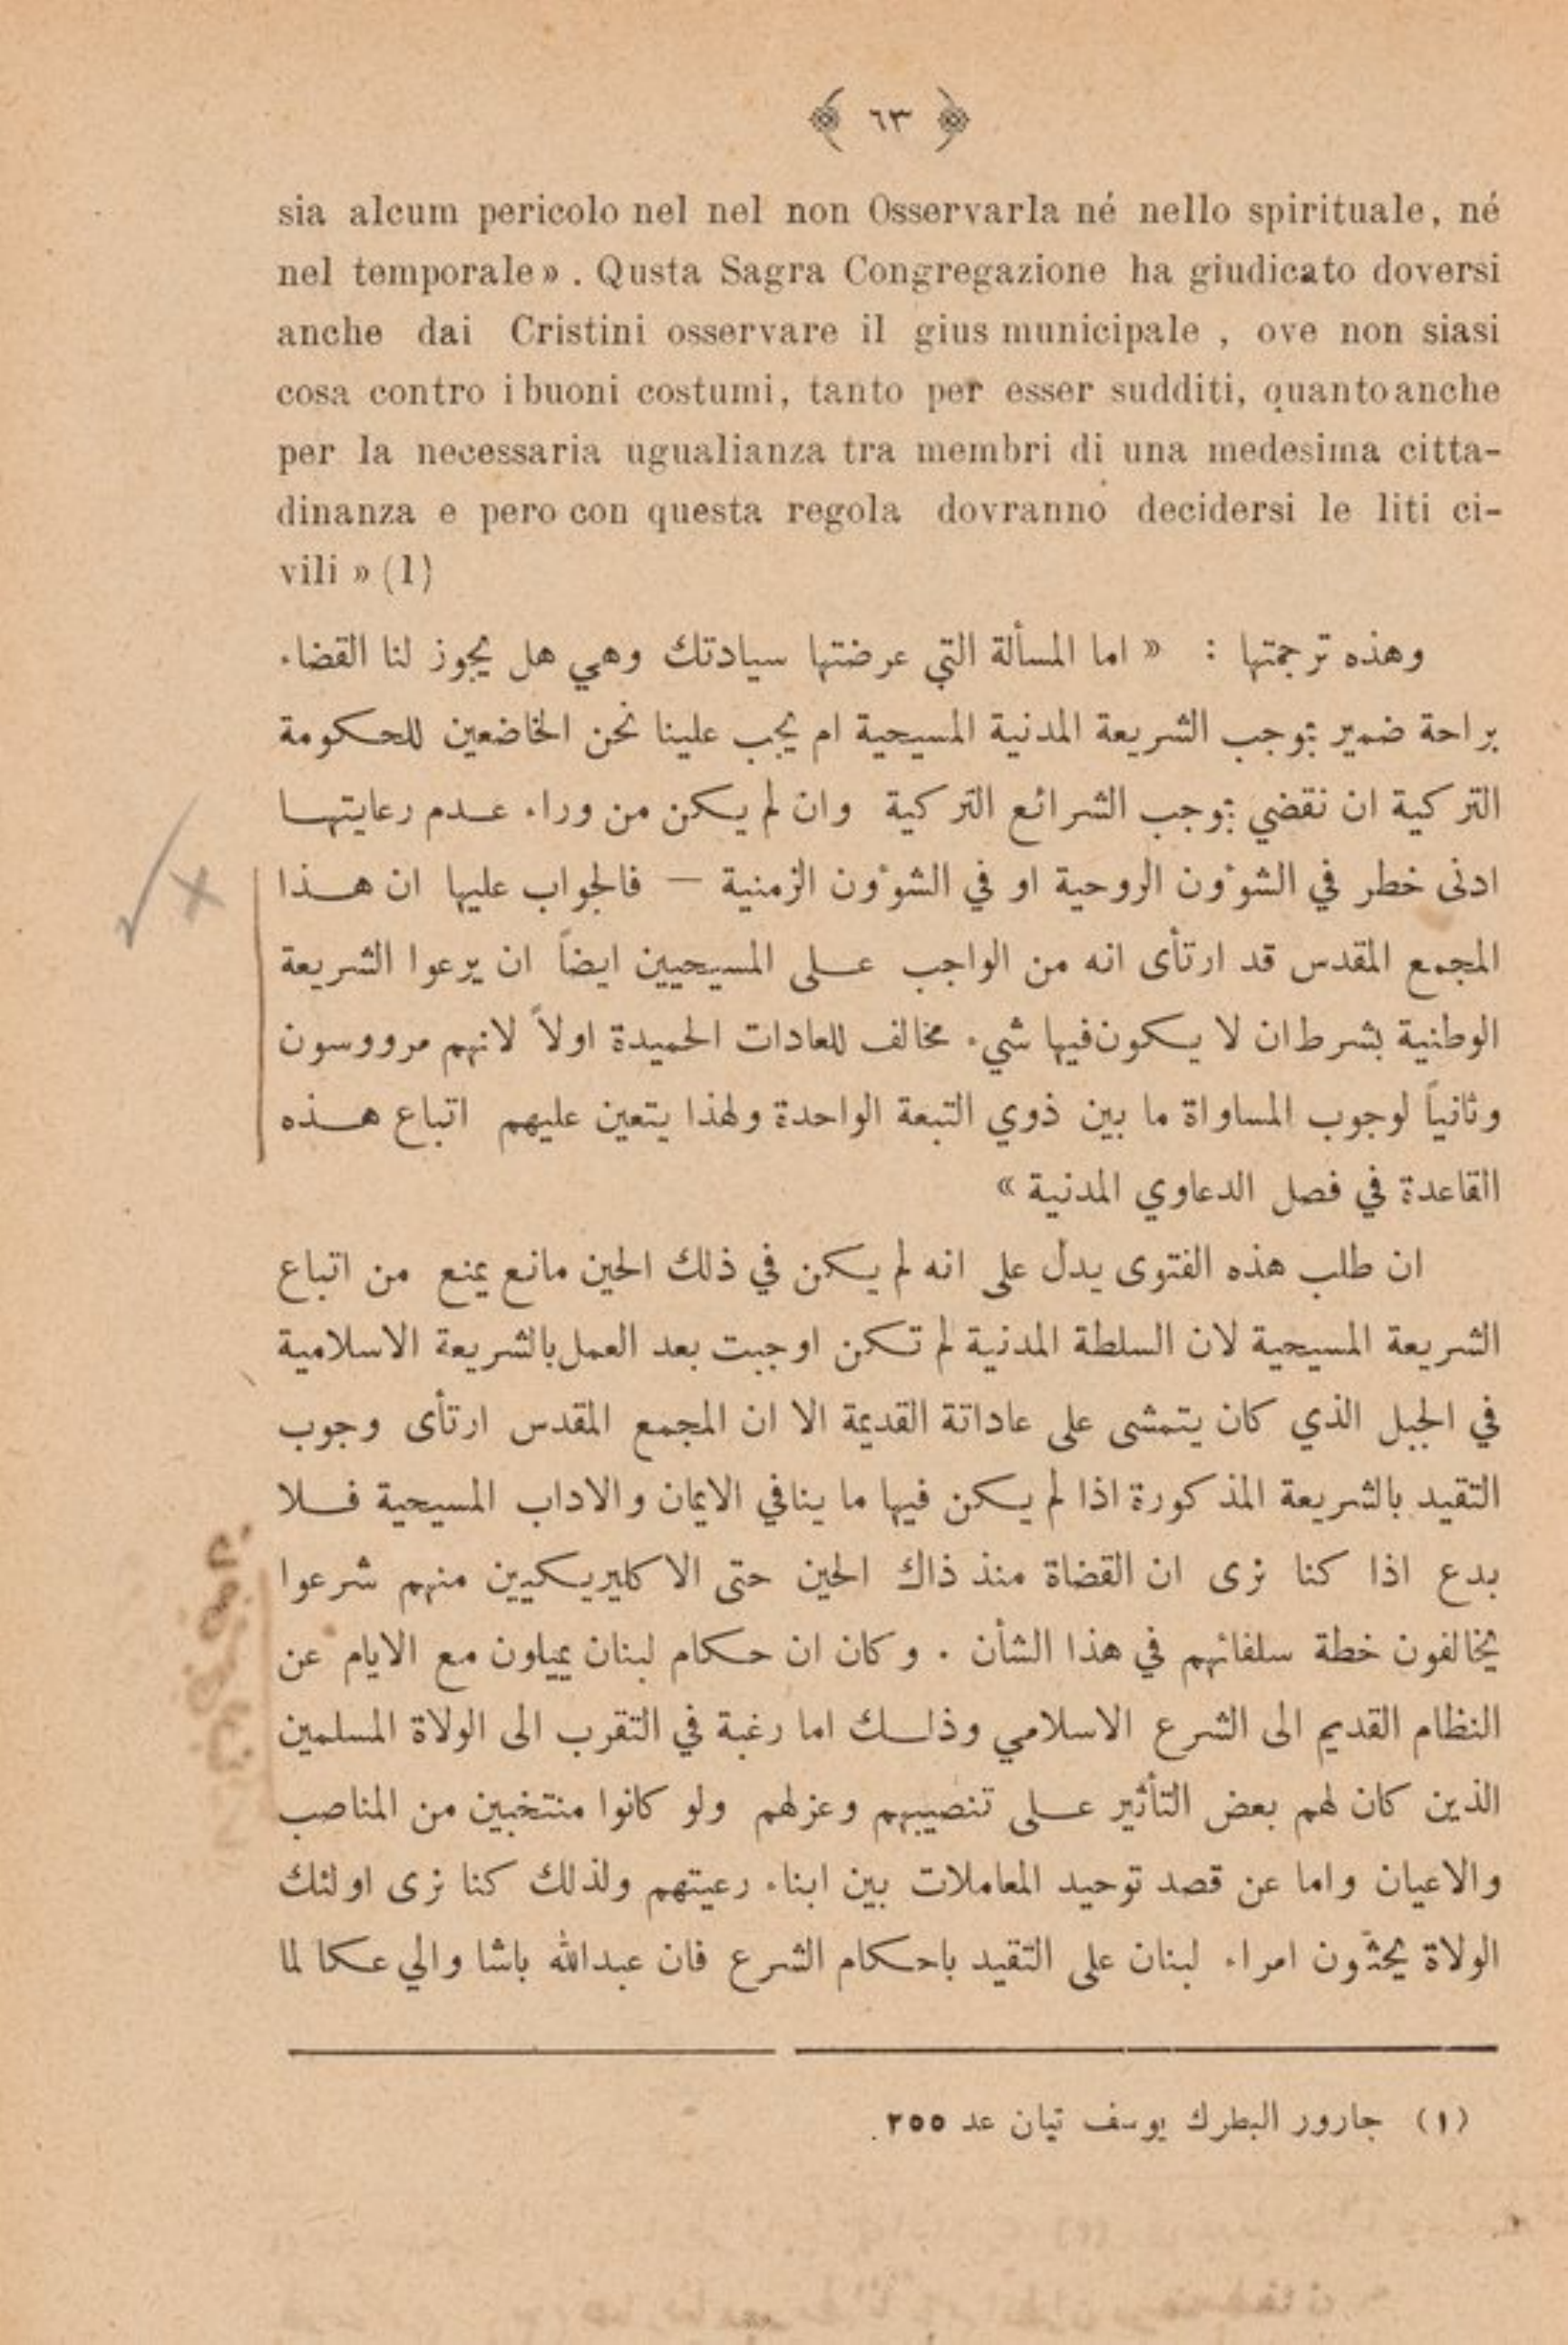 ﴿ ٦٣ ﴾
sia alcum pericolo nel nel non Osservarla né nello spirituale, né
nel temporale» . Qusta Sagra Congregazione ha giudicato doversi
anche dai Cristini osservare il gius municipale , ove non siasi
cosa contro i buoni costumi, tanto per esser sudditi, quanto anche
per la necessaria ugualianza tra membri di una medesima citta-
dinanza e pero con questa regola dovranno decidersi le liti ci-
vili » (1)
وهذه ترجمتها : « اما المسألة التي عرضتها سيادتك وهي هل يجوز لنا القضاء
براحة ضمير بموجب الشريعة المدنية المسيحية ام يجب علينا نحن الخاضعين للحكومة
التركية ان نقضي بموجب الشرائع التركية وان لم يكن من وراء عدم رعايتها
ادنى خطر في الشوءُون الروحية او في الشوءُون الزمنية – فالجواب عليها ان هذا
المجمع المقدس قد ارتأى انه من الواجب على المسيحيين ايضاً ان يرعوا الشريعة
الوطنية بشرط ان لا يكون فيها شيء مخالف للعادات الحميدة اولاً لانهم مرووسون
وثانياً لوجوب المساواة ما بين ذوي التبعة الواحدة ولهذا يتعين عليهم اتباع هذه
القاعدة في فصل الدعاوي المدنية »
ان طلب هذه الفتوى يدل على انه لم يكن في ذلك الحين مانع يمنع من اتباع
الشريعة المسيحية لان السلطة المدنية لم تكن اوجبت بعد العمل بالشريعة الاسلامية
في الجبل الذي كان يتمشى على عاداتة القديمة الا ان المجمع المقدس ارتأى وجوب
التقيد بالشريعة المذكورة اذا لم يكن فيها ما ينافي الايمان والاداب المسيحية فلا
بدع اذا كنا نرى ان القضاة منذ ذاك الحين حتى الاكليريكيين منهم شرعوا
يخالفون خطة سلفائهم في هذا الشأن . وكان ان حكام لبنان يميلون مع الايام عن
النظام القديم الى الشرع الاسلامي وذلك اما رغبة في التقرب الى الولاة المسلمين
الذين كان لهم بعض التأثير على تنصيبهم وعزلهم ولو كانوا منتخبين من المناصب
والاعيان واما عن قصد توحيد المعاملات بين ابناء رعيتهم ولذلك كنا نرى اولئك
الولاة يحثّون امراء لبنان على التقيد باحكام الشرع فان عبدالله باشا والي عكا لما
(١) جارور البطرك يوسف تيان عد ٢٥٥